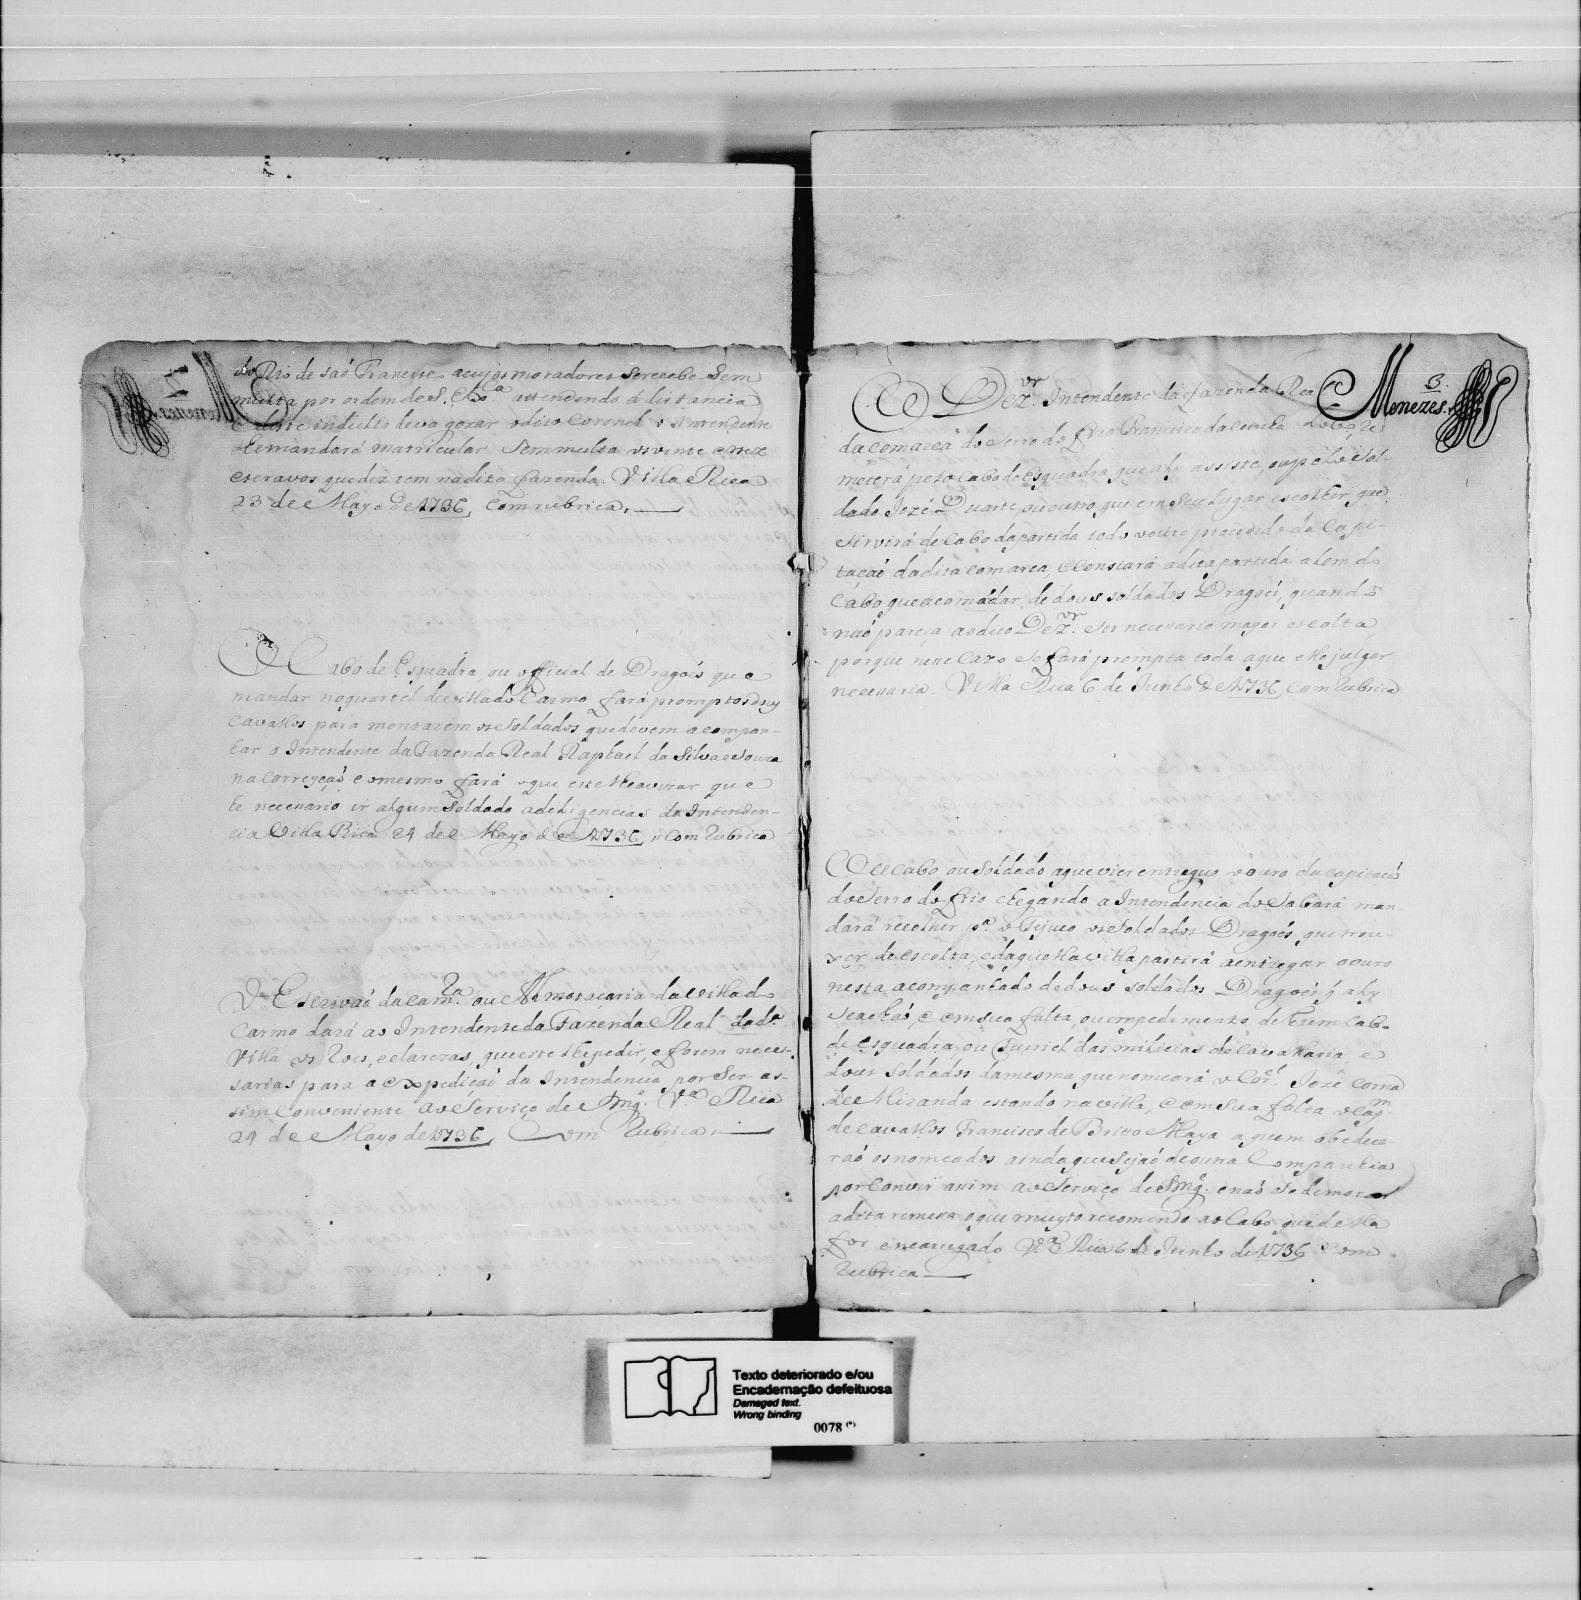 do Rio de saó Francisco acujos moradores serecebe sem
multa por ordem de S. Ex.ª attendendo á distancia
edeste indulto deva gozar o dito Coronel o Intendente
lhemandará matricular sem multa os vinte etrez
escravos quediz tem nadita fazenda. Villa Rica
23 de Mayo de 1736, Com rubrica.
O Cabo de Esquadra, ou official de Dragoés que
mandar noquartel devilla do Carmo fará promptos dous
Cavallos para montarem os Soldados quedevem acompan-
har o Intendente da Fazenda Real Raphael da Silva e Souza
na Correyçaó eomesmo fará oque este lheavizar que
hé necessario ir algum Soldado adeligencias da Intenden-
cia Villa Rica 24 de Mayo de 1736, Com Rubrica
O Escrivaó da cam.ra ou Almotaçaria da Villa do
Carmo dará ao Intendente da Fazenda Real dad.ª
Villa os Roes, eclarezas, queeste lhepedir, e forem neces-
sarias para a expediçaó da Intendencia por Ser as-
sim Conveniente ao Serviço de S. Mg.e V.ª Rica
24 de Mayo de 1736, Com Rubrica.
3.
Menezes.
O Dez.or Intendente da fazenda Real
da comarca do Serro do frio Francisco da cunha Lobo, Re-
meterá pelo Cabo de esquadra, que ahy assiste, ou pelo Sol-
dado Jozé Duarte, ou outro, que em Seu lugar escolher, que
Servirá de Cabo dapartida todo oouro procedido da Capi-
taçaó dadita comarca, eConstará adita partida alem do
Cabo, queacomádar, de dous soldados Dragoés, quando
naó pareça aodito Dez.or ser necessario mayor escolta,
porque nesse Cazo Se fará prompta toda aque elle julgar
necessaria. Villa Rica 6 de Junho de 1736, Com Rubrica
O Cabo ou soldado aquevier entregue o ouro da capitaçaó
do Serro do frio chegando a Intendencia do Sabará man-
dará recolher p.ª o Tijuco os Soldados Dragoés, que trou-
xer de escolta, edaquella villa partirá aentregar o ouro
nesta, acompanhado de dous soldados Dragoés q ahy
Seachaó, e emsua falta, ou empedimento de hum Cabo
de esquadra ou furriel das milicias de cavallaria, e
dous soldados damesma quenomeará o Cor.el Jozé Correa
de Miranda estando na villa, e em sua falta o cap.m
de cavallos Francisco de Britto Maya aquem obedece-
raó osnomeados ainda que sejaó de outra Companhia
por Convir assim ao Serviço de S. Mg.e enaó Se demorar
adita remessa oque muyto recomendo ao Cabo, que della
for encarregado V.ª Rica 6 de Junho de 1736 Com
Rubrica
Texto deteriorado e/ou
Encadernação defeituosa
Damaged text.
Wrong binding
0078 (*)